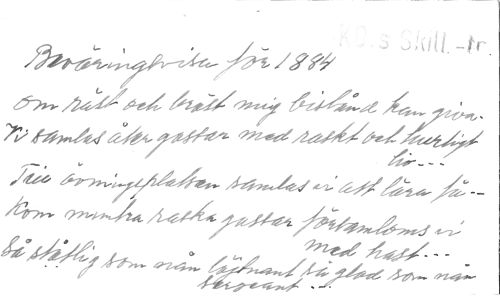 KB:s Skill.-tr.
Beväringsvisa för 1884
om råst och bräst mig bistånd kan giva.
Vi samlas åter gastar med raskt och hurtigt
liv...
Till övningsplatsen samlas vi att lära få--
Kom muntra raska gastar församloms vi
med hast...
Så ståtlig som nån löjtnant så glad som nån
sergeant...